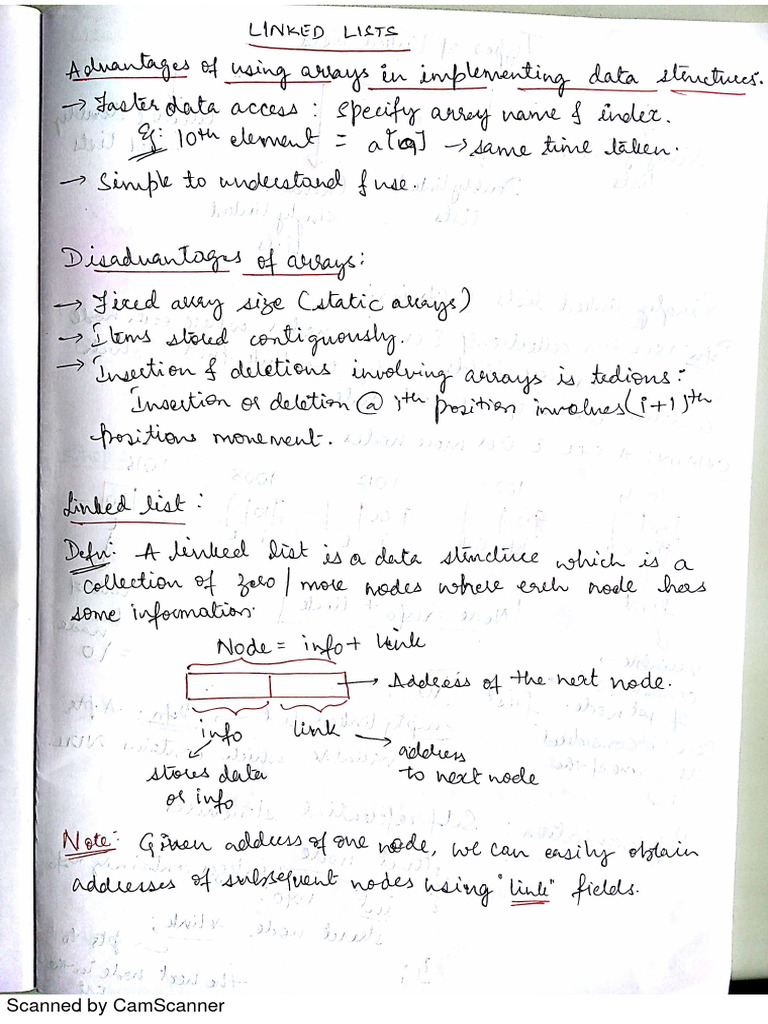 LINKED LISTS
Advantages of using arrays in implementing data structures.
→ Faster data access : specify array name & index.
Eg: 10th element = a[9] → same time taken.
→ Simple to understand & use.
Disadvantages of arrays:
→ Fixed array size (static arrays)
→ Items stored contiguously.
→ Insertion & deletions involving arrays is tedious:-
Insertion or deletion @ ith position involves (i+1)th
positions movement.
Linked list :
Defn: A linked list is a data structure which is a
collection of zero / more nodes where each node has
some information.
Node = info + link
→ Address of the next node.
info link → address
stores data to next node
or info
Note: Given address of one node, we can easily obtain
addresses of subsequent nodes using "link" fields.
Scanned by CamScanner